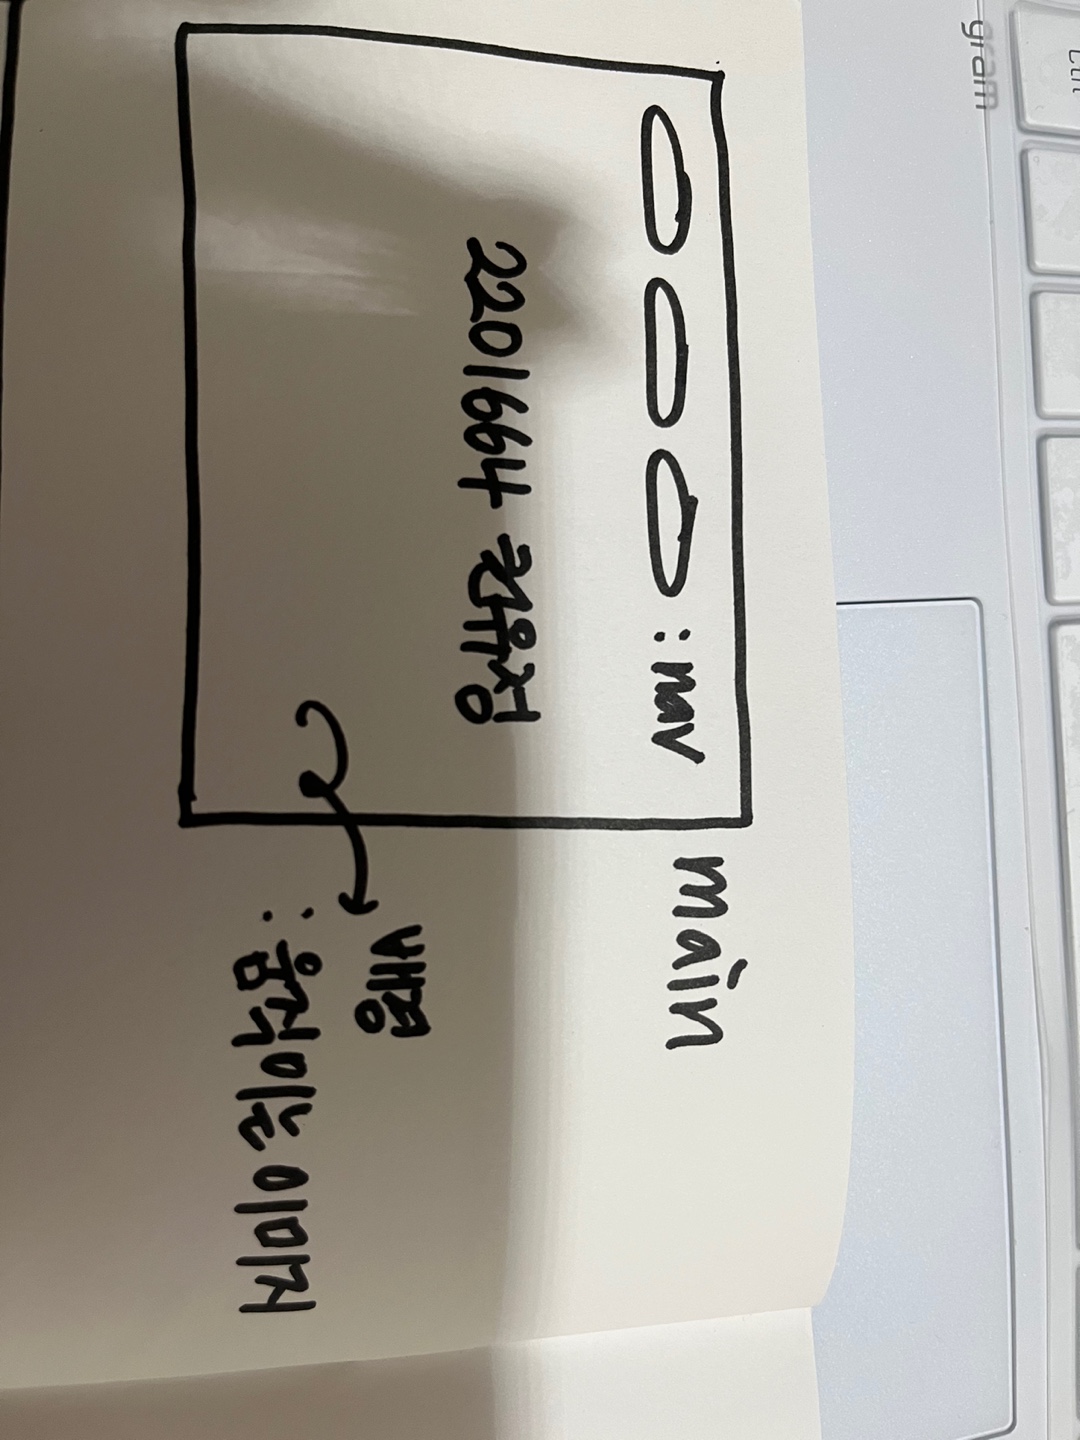 Ctrl
gram
: nav
main
2201664 권유정
배경
: 움직이는 이미지